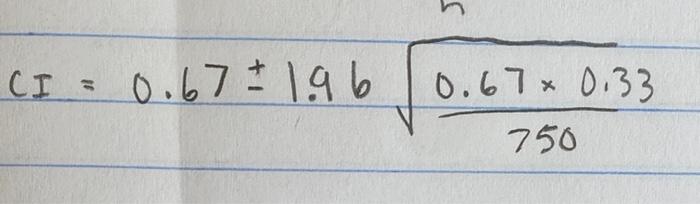 n
CI = 0.67 ± 1.96 √(0.67 × 0.33
750)